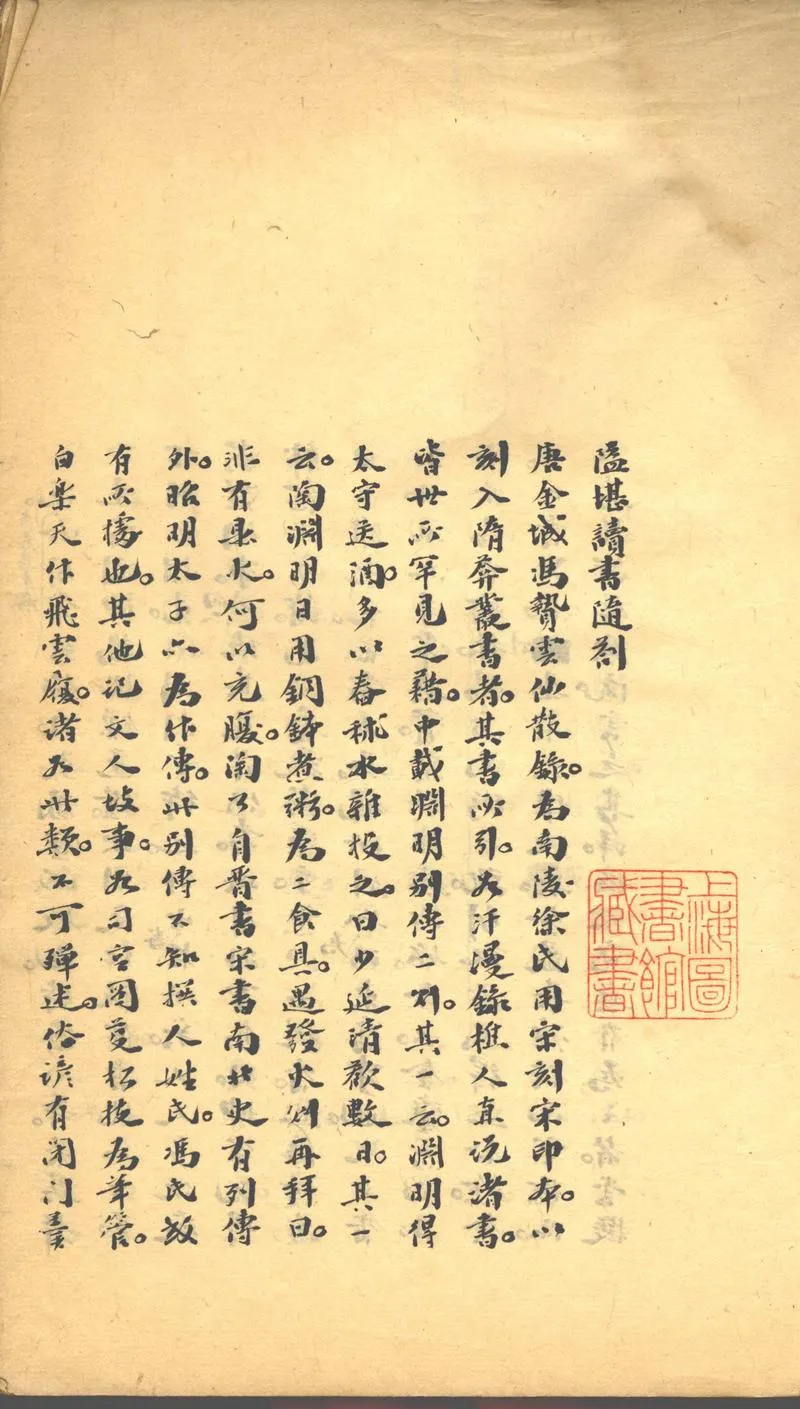 隘堪讀書隨劄
唐金城馮贄雲仙散錄。為南陵徐氏用宋刻宋印本。以
刻入隋葊叢書者。其書所引。如汗漫錄樵人直說諸書。
皆世所罕見之籍。中載淵明別傳二則。其一云。淵明得
太守送酒。多以舂秫水雜投之。曰少延清歡數日。其一
云。陶淵明日用銅鉢煮粥。為二食具。遇發火則再拜曰。
非有是火。何以充腹。淘了自晉書宋書南北史有列傳
外。昭明太子亦為作傳。此別傳不知撰人姓氏。馮氏故
有所據也。其他記文人故事。如司空圖芟松枝為筆管。
白樂天作飛雲履。諸如此類。不可殫述。俗諺有閉門羹
上海圖書館藏書